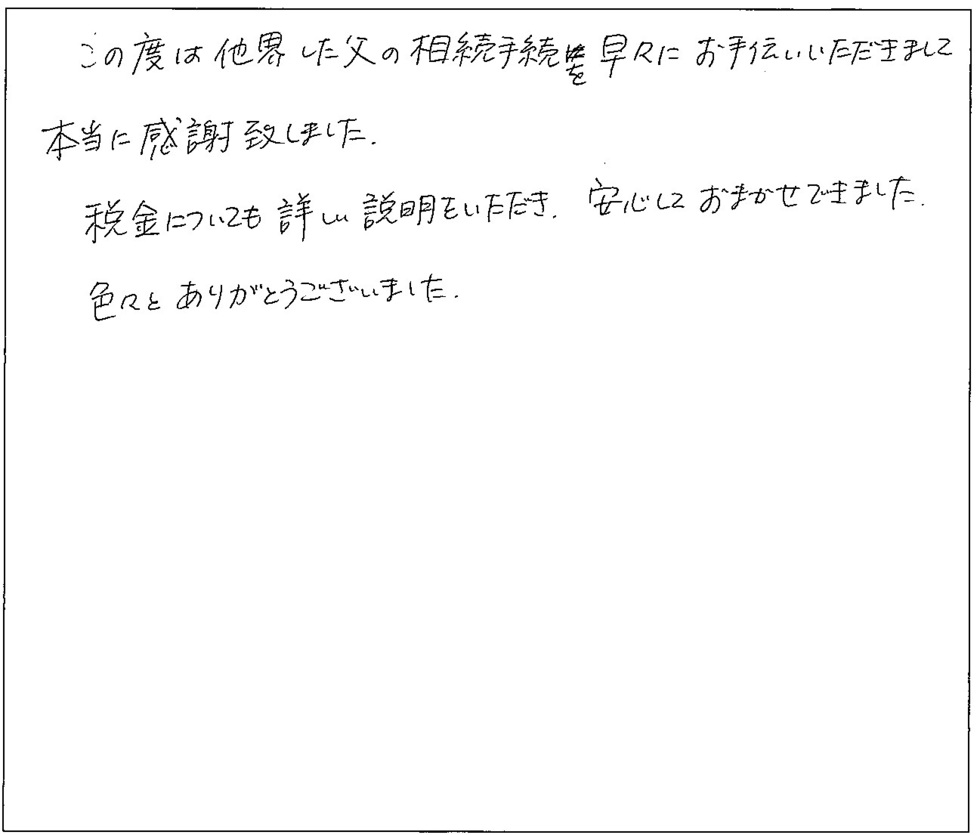 この度は他界した父の相続手続を早々にお手伝いいただきまして
本当に感謝致しました.
税金についても詳しい説明をいただき. 安心しておまかせできました.
色々とありがとうございました.